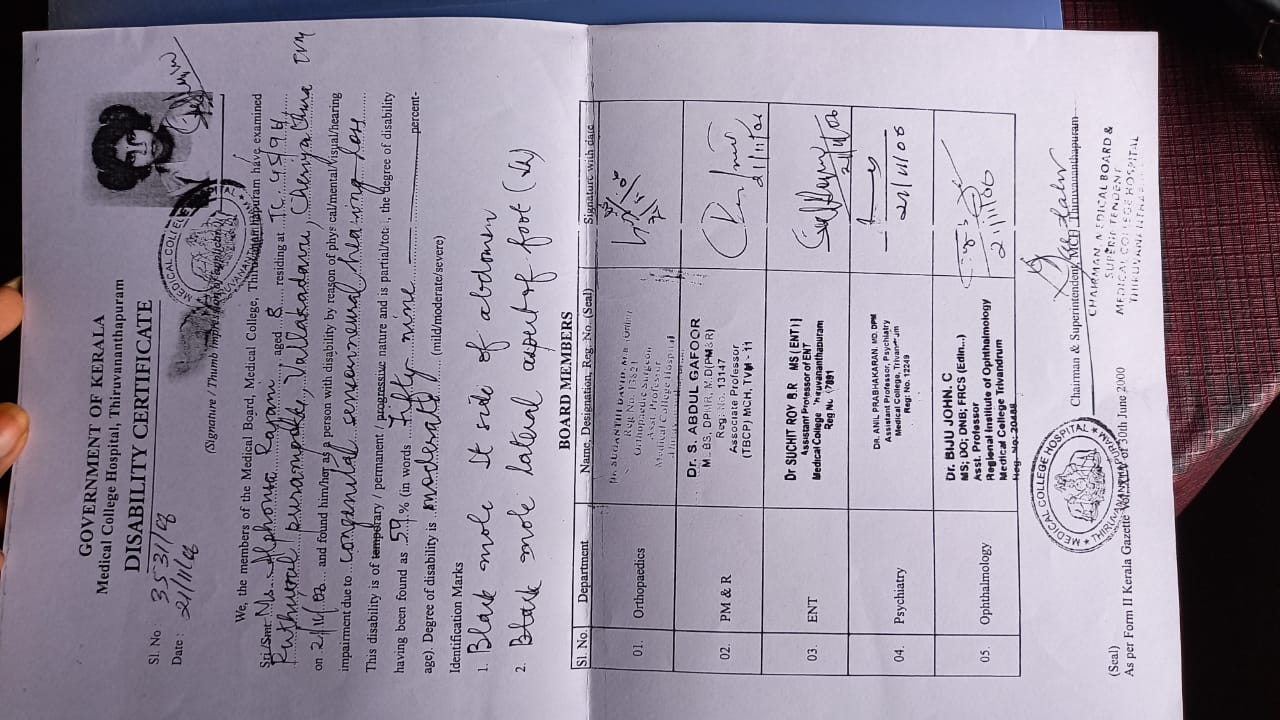 GOVERNMENT OF KERALA
Medical College Hospital, Thiruvananthapuram
DISABILITY CERTIFICATE
Sl. No : 3531/08
Date : 21/11/08
(Signature/Thumb Impression of Applicant)
We, the members of the Medical Board, Medical College, Thiruvananthapuram have examined
Sri/Smt. Alphonsa Rajan aged 8 residing at TC 4594
Puthuval purampokku, Vallakadavu, Cheriyathura TVM
on 21/11/08 and found him/her as a person with disability by reason of physical/mental/visual/hearing
impairment due to congenital sensorineural hearing loss
This disability is of temporary / permanent / progressive nature and is partial/tot. , the degree of disability
having been found as 59 % (in words Fifty nine percent-
age). Degree of disability is moderate (mild/moderate/severe)
Identification Marks
1. Black mole lt side of abdomen
2. Black mole lateral aspect of foot
BOARD MEMBERS
Sl. No. Department Name, Designation, Reg. No. (Seal) Signature with date
01. Orthopaedics
Orthopaedic Surgeon
Asst. Professor
Medical College Hospital
02. PM & R Dr. S. ABDUL GAFOOR
M.BS, DPMR, M.D(PM&R)
Reg. No. 13147
Associate Professor
(TBCP) MCH, TVM - 11
21/11/08
03. ENT Dr SUCHIT ROY B.R MS (ENT)
Assistant Professor of ENT
Medical College Thiruvananthapuram
Reg No. 7891
21/11/08
04. Psychiatry DR. ANIL PRABHAKARAN. MD. DPM
Assistant Professor, Psychiatry
Medical College, Trivandrum
Reg: No. 12249
21/11/08
05. Ophthalmology Dr. BIJU JOHN. C
MS; DO; DNB; FRCS (Edin...)
Asst. Professor
Regional Institute of Ophthalmology
Medical College Trivandrum
Reg. No: 20488
21/11/08
Chairman & Superintendent, MCH Thiruvananthapuram
CHAIRMAN MEDICAL BOARD &
SUPERINTENDENT
MEDICAL COLLEGE HOSPITAL
THIRUVANANTHAPURAM
MEDICAL COLLEGE HOSPITAL
THIRUVANANTHAPURAM
(Seal)
As per Form II Kerala Gazette of 30th June 2000